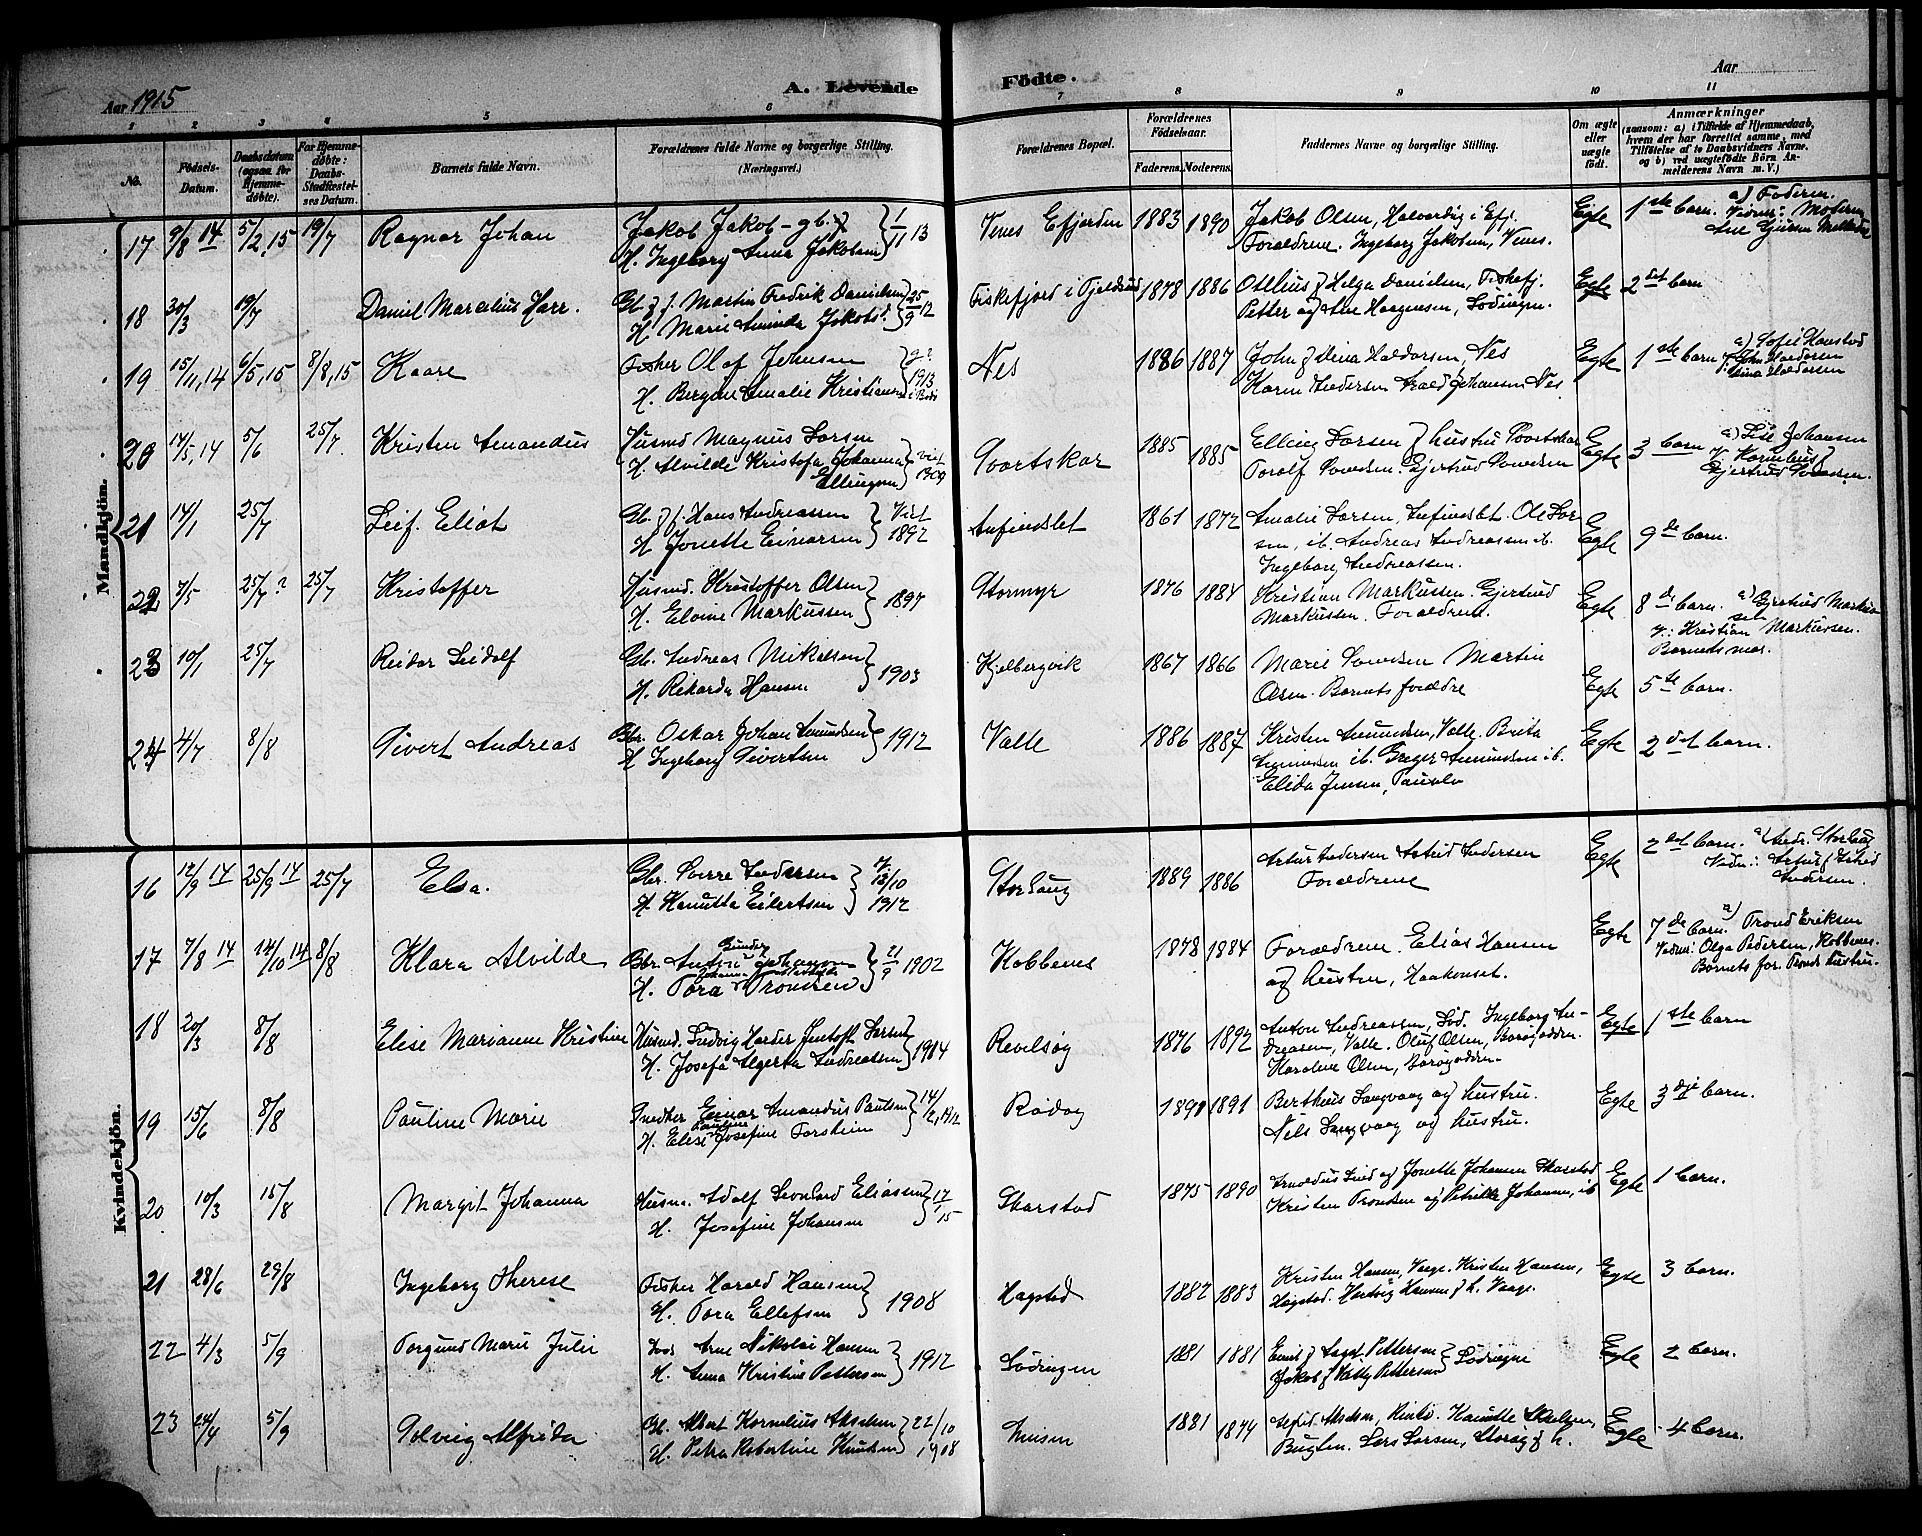 Aar 1915
A. Levende
Födte.
Aar
1 2 3 4 5 6 7 8 9 10 11
No.
Födsels-
Datum.
Daabsdatum
(ogsaa for
Hjemme-
döbte).
For Hjemme-
döbte:
Daabs-
Stadfæstel-
ses Datum.
Barnets fulde Navn.
Forældrenes fulde Navne og borgerlige Stilling.
(Næringsvei.)
Forældrenes Bopæl.
Forældrenes
Födselsaar.
Faderens. Moderens.
Faddernes Navne og borgerlige Stilling.
Om ægte
eller
uægte
födt.
Anmærkninger
(saasom: a) i Tilfælde af Hjemmedaab,
hvem der har forrettet samme, med
Tilföielse af to Daabsvidners Navne.
og b) ved uægtefödte Börn An-
melderens Navn m. V.)
Mandkjön.
17 9/8 14 5/2,15 19/7 Ragnar Johan
Jakob Jakob - gb.
H. Ingeborg Anna Jakobsen 1/11 13
Venes Efjorden 1883 1890
Jakob Olsen, Halvardig i Efj.
Forældrene. Ingeborg Jakobsen, Venes.
Egte 1ste barn. a) Faderen
Vidner: Moderen
18 30/3 19/7 Daniel Marcelius Harr.
Gb. f. Martin Fredrik Danielsen
H. Marie Aminda Jakobs. 25/9 12
Fiskefjord i Tjeldsund 1878 1886
Otelius & Helga Danielsen, Fiskefj.
Petter og Ane Haagensen, Lödingen.
Egte 2det barn
19 15/11,14 6/5,15 8/8,15 Kaare
Fisker Olaf Johnsen
H. Bergine Amalie Kristiansen 1913 i Bodö
Nes 1886 1887
John & Dina Haldorsen, Nes
Karen Andersen Johansen Nes
Egte 1ste barn a) Sofie Hanstad
v: John Haldorsen
Dina Haldorsen
20 17/5,14 5/6 25/7 Kristen Amandus
Husmd Magnus Larsen
H. Alvilde Kristofa Johanna
Ellingsen viet 1909
Svartskar 1885 1885
Elling Larsen & hustru Svartskar
Torolf Svendsen. Gjertrud Svendsen
Egte 3 barn a) Lise Johansen
v. Kornelius &
Gjertrud Svendsen.
21 14/1 25/7 Leif. Eliot
Gb. f. Hans Andreassen
H Jonette Einarsen Viet 1892
Anfindslet 1861 1872
Amalie Larsen, Anfindslet. Ole Lar-
sen, ib. Andreas Andreassen ib.
Ingeborg Andreassen.
Egte 9de barn.
22 7/5 25/7? 25/7 Kristoffer
Husmd. Kristoffer Olsen
H. Elvine Markussen 1897
Stormyr 1876 1884
Kristian Markussen. Gjertrud
Markussen. Forældrene.
Egte 8de barn. a) Gjertrud Markus-
sen
v: Kristian Markussen.
Barnets mor.
23 10/1 25/7 Reidar Leidolf
Gb. Andreas Mikalsen
H. Rikarda Hansen 1903
Kjelbergvik 1867 1866
Marie Svendsen Martin
Olsen. Barnets forældre
Egte 5te barn.
24 4/7 8/8 Sivert Andreas
Gbr. Oskar Johan Amundsen
H Ingeborg Sivertsen 1912
Valle 1886 1887
Kristen Amundsen, Valle. Brita
Amundsen ib. Greger Amundsen ib.
Elida Jensen,
Egte 2det barn.
Kvindekjön.
16 12/9 14 25/9 14 25/7 Elsa.
Gbr. Sverre Andersen
H. Hanutta Eilertsen 12/10 1912
Storhaug 1889 1886
Artur Andersen Astrid Andersen
Forældrene
Egte 2det barn. a) Andr. Storhaug
Vidn: Artur & Astrid
Andersen.
17 7/8 14 14/10 14 8/8 Klara Alvilde
Gbr. Anton Gunder Johansen
H. Tora Tronsen 21/9 1902
Kobbenes 1878 1884
Forældrene. Elias Hansen
og hustru, Haakonset.
Egte 7de barn. a) Trond Eriksen
Vidn: Olga Pedersen, Kobbenes.
Barnets for. Tronds hustru.
18 20/3 8/8 Elise Marianne Kristine
Husmd. Ludvig Harder Jentoft Larsen
H. Josefa Algerta Andreassen 1914
Revelsøy 1876 1892
Anton Andreassen, Lød. Ingeborg An-
dreassen, Valle. Oluf Olsen, Barøyodden.
Karoline Olsen, Barøyodden.
Egte 1ste barn
19 15/6 8/8 Pauline Marie
Snedker Einar Amandus Paulsen
H. Elise Pauline Josefine Forsheim 14/2,1912
Rødøy 1890 1891
Berthus Langvaag og hustru.
Nils Langvaag og hustru.
Egte 3dje barn.
20 10/3 15/8 Margit Johanna
Husm. Adolf Leonhard Eliassen
H. Josefine Johansen 17/1 15
Skarstad 1875 1890
Arnoldus Lind og Jonette Johansen Skarstad
Kristen Tronsen og Petrikke Johansen, ib
Egte 1 barn.
21 28/6 29/8 Ingeborg Therese
Fisker Harald Hansen
H. Tora Ellefsen 1908
Hagstad 1882 1883
Kristen Hansen, Vaage. Kristen Hansen,
Hagstad. Hartvig Hansen & h. Vaage.
Egte 3 barn.
22 4/3 5/9 Torgund Marie Julie
Lods Arne Nikolai Hansen
H. Anna Kristine Pettersen 1912
Lødingen 1881 1881
Emil & Aagot Pettersen
Jakob & Kitty Pettersen Lødingen
Egte 2 barn.
23 24/4 5/9 Solveig Alfrida
Gb. Albert Kornelius Akselsen
H. Petra Robertine Knutsen 22/10 1908
1881 1874
Alfred Akselsen, Rinö. Hanutte
Lars Larsen, Storøy & h.
Egte 4 barn.